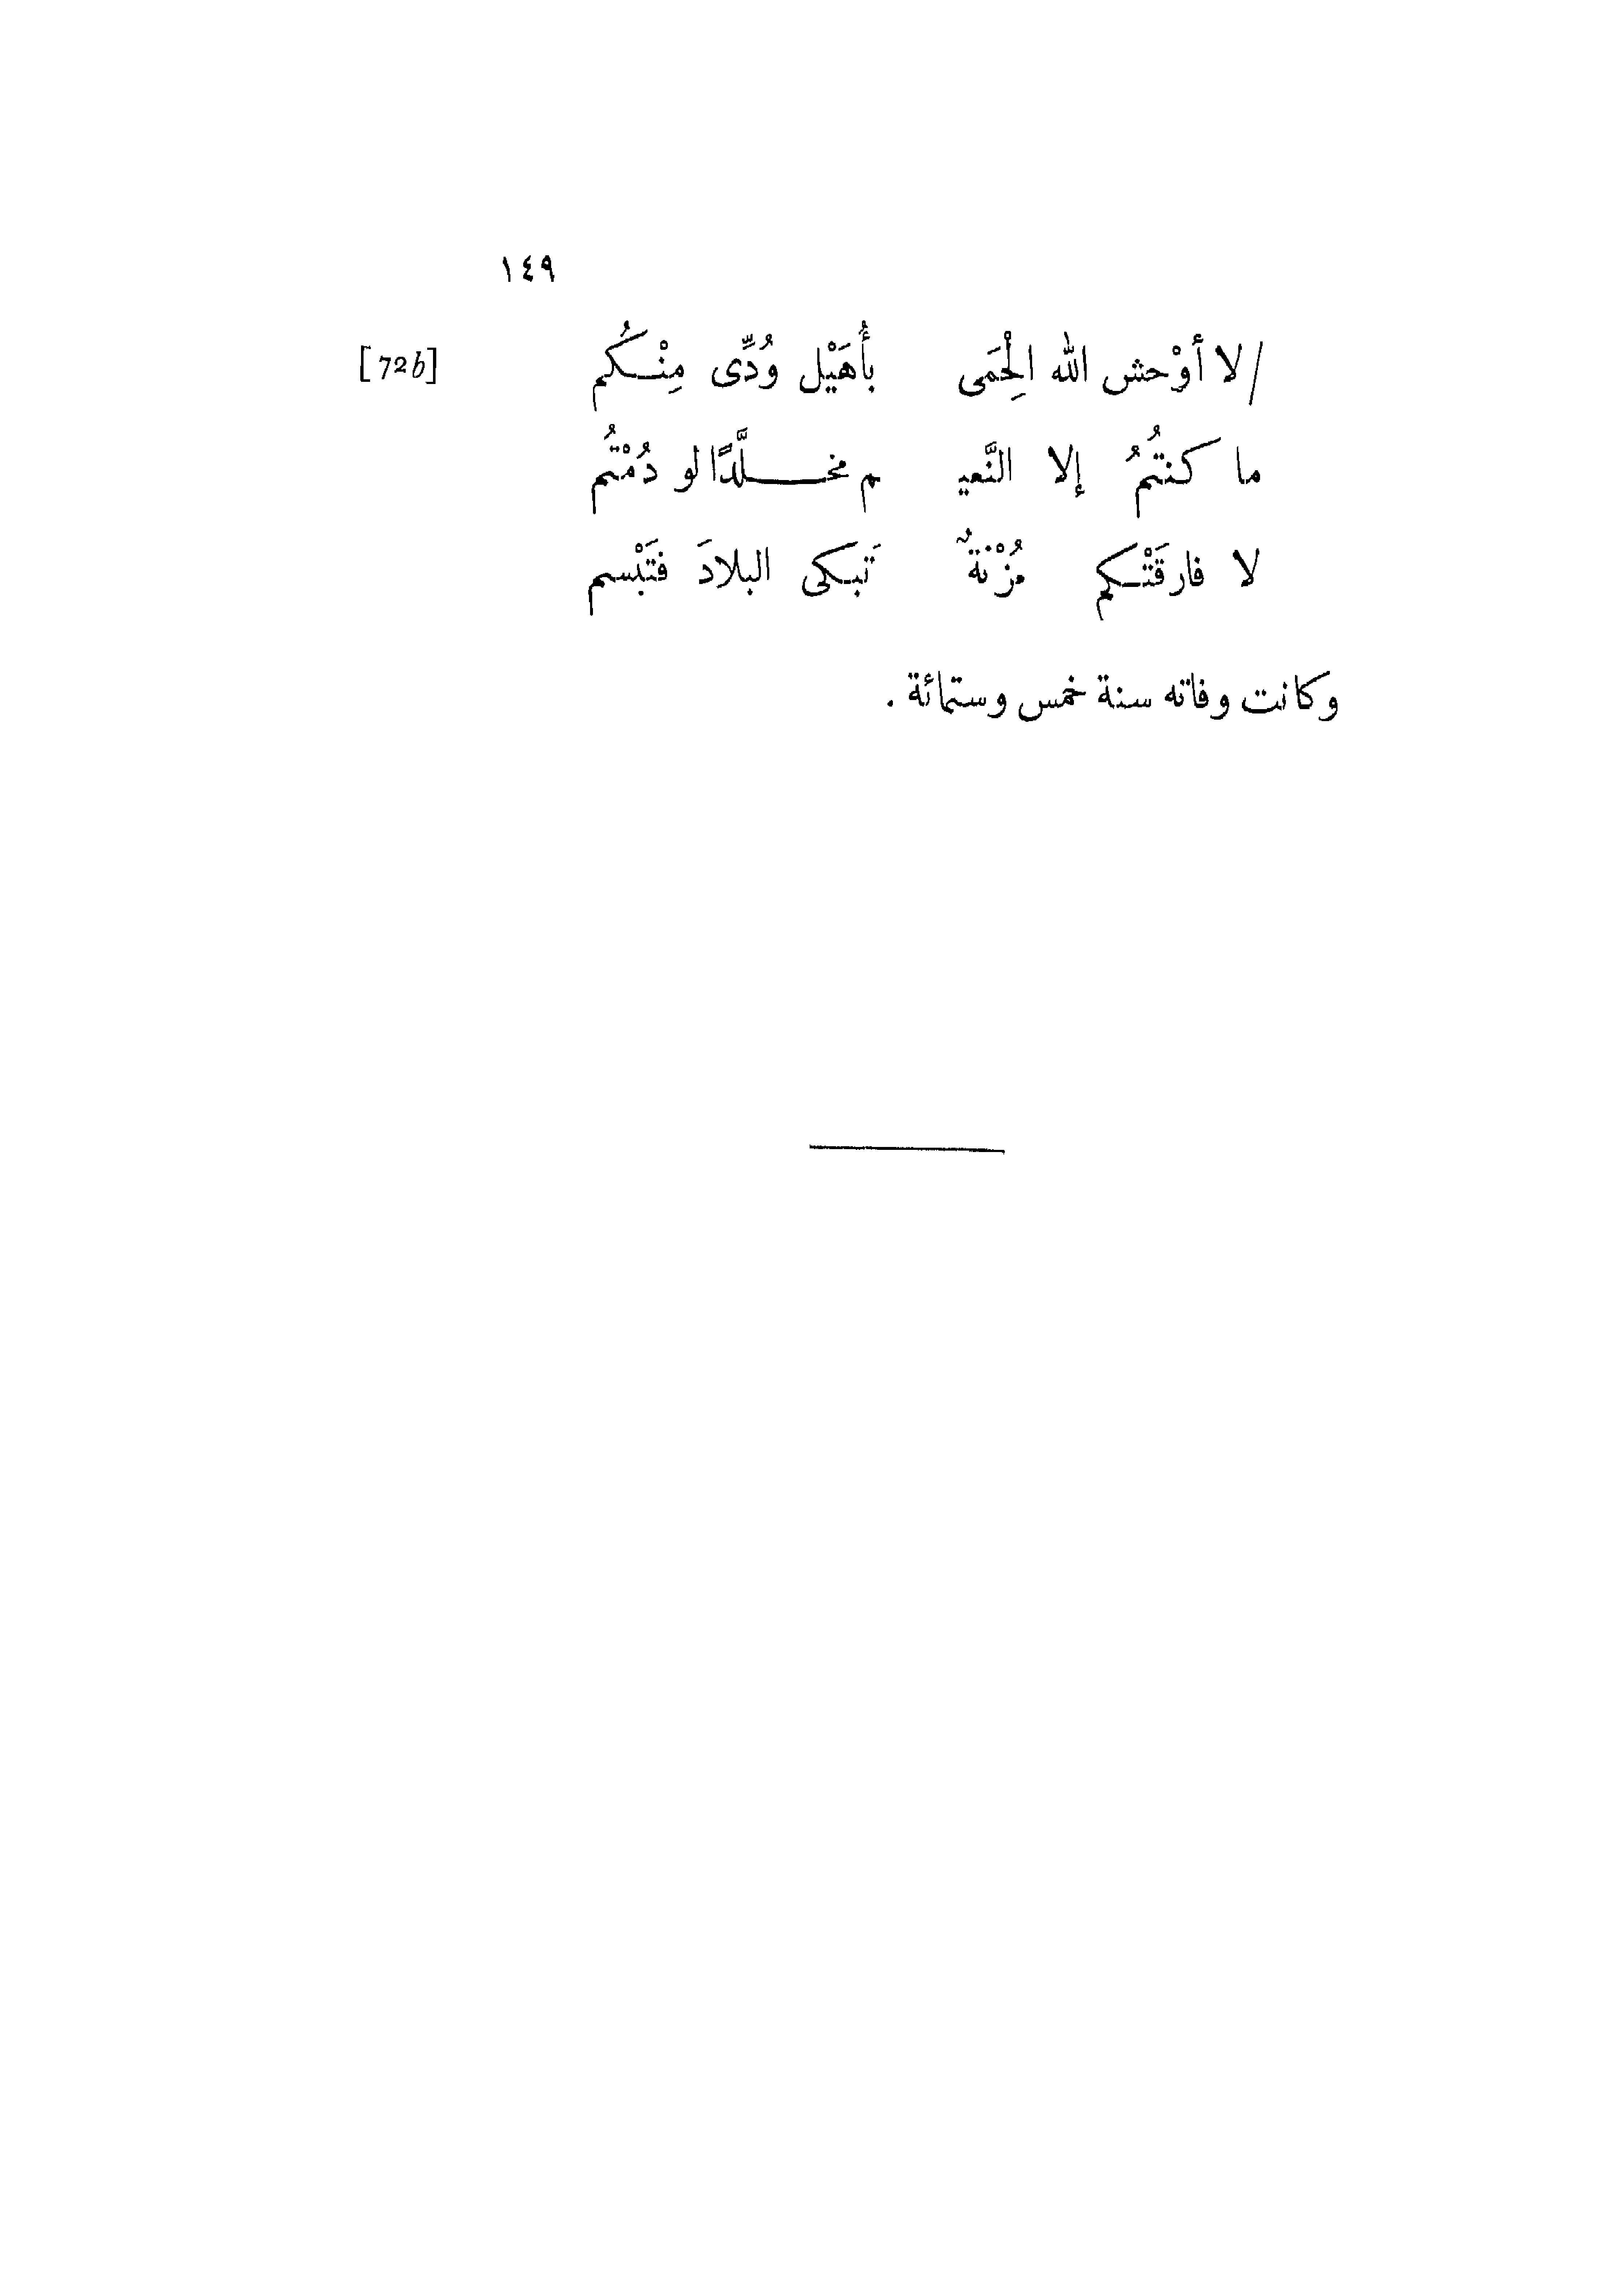 ١٤٩
/لا أوْحش الله الِحْمَى بأُهَيْل وُدِّى مِنْكُم [72b]
ما كنتُمُ إلا النَّعيـ ـم مخلَّدًا لو دُمْتُم
لا فارقَتْكم مُزْنةٌ تَبكى البلادَ فتَبْسم
وكانت وفاته سنة خمس وستمائة .